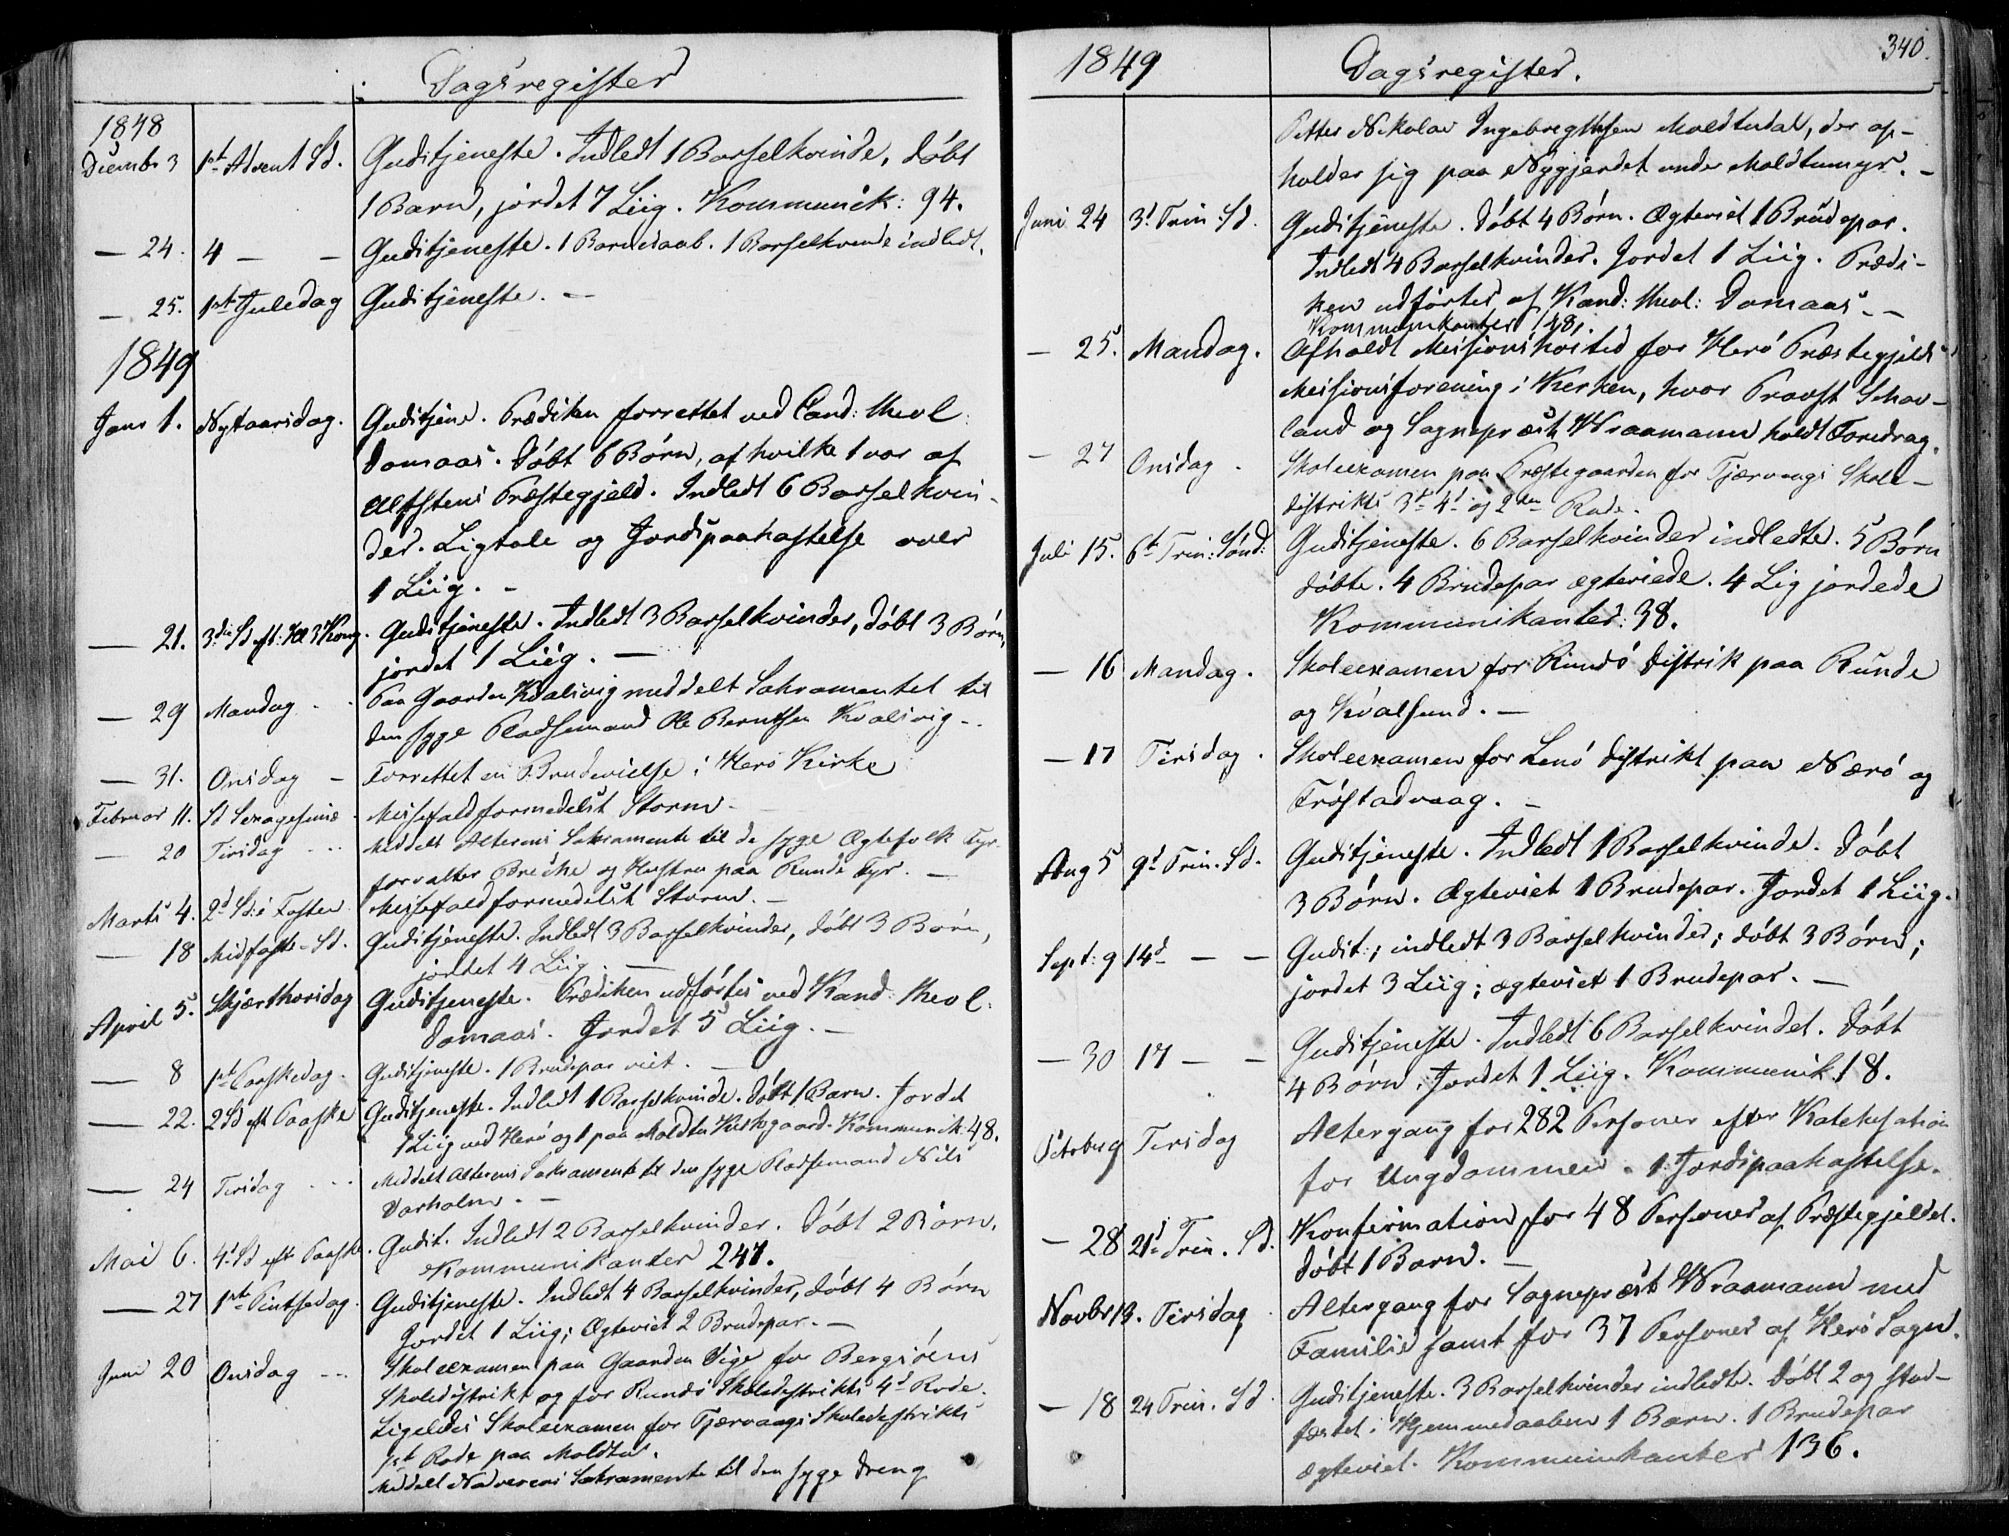 Dagsregister
1848
Decemb. 3 1ste Advent Sd. Gudstjeneste. Indledt 1 Barselkvinde, døbt
1 Barn, jordet 7 Liig. Kommunik: 94.
— 24. 4 — — Gudstjeneste. 1 Barnedaab. 1 Barselkvinde indledt.
— 25. 1ste Juledag Gudstjeneste. —
1849
Janr 1. Nytaarsdag. Gudstjene. Prædiken forrettet ved Cand: theol
Domaas. Døbt 6 Børn, af hvilke 1 var af
Ulfstens Præstegjeld. Indledt 6 Barselkvin-
der. Ligtale og Jordspaakastelse over
1 Liig. —
— 21. 3die Sd eft: Hl 3 Kong. Gudstjeneste. Indledt 3 Barselkvinder, døbt 3 Børn,
jordet 1 Liig. —
— 29 Mandag - - Paa Gaarden Kvalsvig meddelt Sakramentet til
den syge Pladsemand Ole Berntsen Kvalsvig -.
— 31. Onsdag - Forrettet en Brudevielse i Herø Kirke
Februar 11. Sd Sexagesimæ - Messefald formedelst Storm -
— 20 Tirsdag - - - Meddelt Alterens Sakramente til de syge Ægtefolk Fyr-
forvalter og Hustru paa Runde Fyr. —
Marts 4. 2d Sd: i Fasten Messefald formedelst Storm. —
— 18 Midfaste-Sd. Gudstjeneste. Indledt 3 Barselkvinder, døbt 3 Børn,
jordet 4 Liig. —
April 5. Skjærthorsdag Gudstjeneste. Prædiken udførtes ved Kand: theol.
Domaas. Jordet 5 Liig. —
— 8 1ste Paaskedag. Gudstjeneste. 1 Brudepar viet. —
— 22. 2 Sd eft Paaske Gudstjeneste. Indledt 1 Barselkvinde. Døbt 1 Barn. Jordet
1 Liig ved Herø og 1 paa Moldtu Kirkegaard. Kommunik: 48.
— 24 Tirsdag - - - Meddelt Alterens Sakramente til den syge Pladsemand Nils
Vorholm. —
Mai 6. 4d Sd eft Paaske. Gudst. Indledt 2 Barselkvinder. Døbt 2 Børn.
Kommunikanter 247.
— 27 1ste Pintsedag. Gudstjeneste. Indledt 4 Barselkvinder, døbt 4 Børn
Jordet 1 Liig; Ægteviet 2 Brudepar. —
Juni 20 Onsdag - - - Skoleexamen paa Gaarden Vige for Bergsøens
Skoledistrikt og for Rundø Skoledistrikts 4d Rode.
Ligeledes Skoleexamen for Tjærvaags Skoledistrikts
1ste Rode paa Moldtu.
Meddelt Nadverens Sakramente til den syge Dreng
1849 Dagsregister. 340.
Petter Nikolai Ingebregthsen Moldtudal, der op-
holder sig paa Nygjerdet under Moldtumyr. —
Juni 24 3d Trin: Sd. Gudstjeneste. Døbt 4 Børn. Ægteviet 1 Brudepar.
Indledt 4 Barselkvinder. Jordet 1 Liig. Prædi-
ken udførtes af Kand: theol: Domaas. —
Kommunikanter 148.
— 25. Mandag. Afholdt Missionshøitid for Herø Præstegjelds
Missionsforening i Kirken, hvor Provst Schav-
land og Sognepræst Wraamann holdt Foredrag.
— 27 Onsdag - Skoleexamen paa Præstegaarden for Tjærvaags Skole-
distrikts 3d 4d og 2den Rode.
Juli 15. 6te Trin: Sønd: Gudstjeneste. 6 Barselkvinder indledte. 5 Børn
døbte. 4 Brudepar ægteviede. 4 Lig jordede
Kommunikanter: 38.
— 16 Mandag. Skoleexamen for Rundø Distrik paa Runde
og Kvalsund. —
— 17 Tirsdag. Skoleexamen for Lenø Distrikt paa Nærø og
Frøstadvaag. —
Aug 5 9d Trin. Sd. Gudstjeneste. Indledt 1 Barselkvinde. Døbt
3 Børn. Ægteviet 1 Brudepar. Jordet 1 Liig.
Sept: 9 14d — — Gudst:; indledt 3 Barselkvinder; døbt 3 Børn;
jordet 3 Liig; ægteviet 1 Brudepar. —
— 30 17 — — Gudstjeneste. Indledt 6 Barselkvinder. Døbt
4 Børn. Jordet 1 Liig. Kommunik. 18.
Octobr 9 Tirsdag Altergang for 282 Personer efter Katekisation
for Ungdommen. 1 Jordspaakastelse.
— 28 21d Trin. Sd. Konfirmation for 48 Personer af Præstegjeldet.
Døbt 1 Barn. —
Novbr 13. Tirsdag Altergang for Sognepræst Wraamann med
Familie samt for 37 Personer af Herø Sogn.
— 18 24 Trin. Sd. Gudstjeneste. 3 Barselkvinder indledte. Døbt 2 og stad-
fæstet i Hjemmedaaben 1 Barn. 1 Brudepar
ægteviet. Kommunikanter 136.